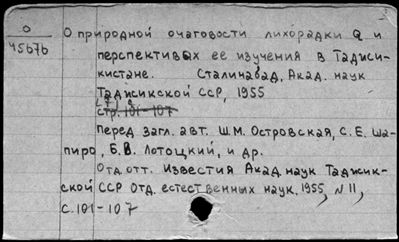 О
45676
О природной очаговости лихорадки Q и
перспективах ее изучения в Таджи-
кистане. Сталинабад, Акад. наук
Таджикской ССР, 1955
[7]
стр. 101-107
перед загл. авт. Ш.М. Островская, С.Е. Ша-
пиро, Б.В. Лотоцкий, и др.
Отд. отт. Известия Акад. наук Таджик-
ской ССР Отд. естественных наук, 1955, N 11,
с. 101-107